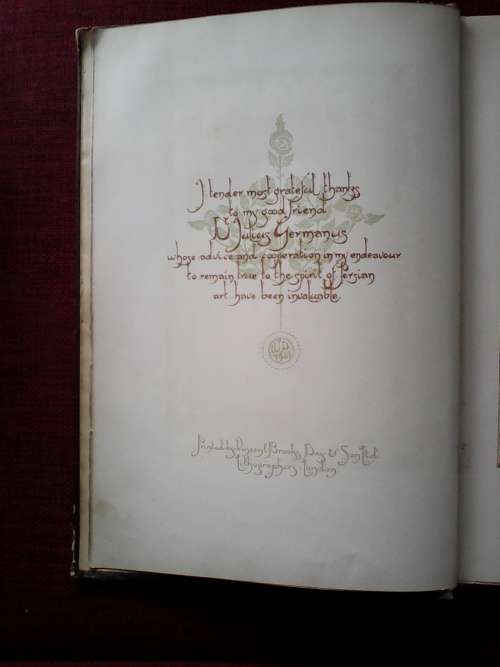 I tender most grateful thanks
to my good friend
Dr Julius Germanus
whose advice and cooperation in my endeavour
to remain true to the spirit of Persian
art have been invaluable.
Printed by Vincent Brooks, Day & Son Ltd.
Lithographers London